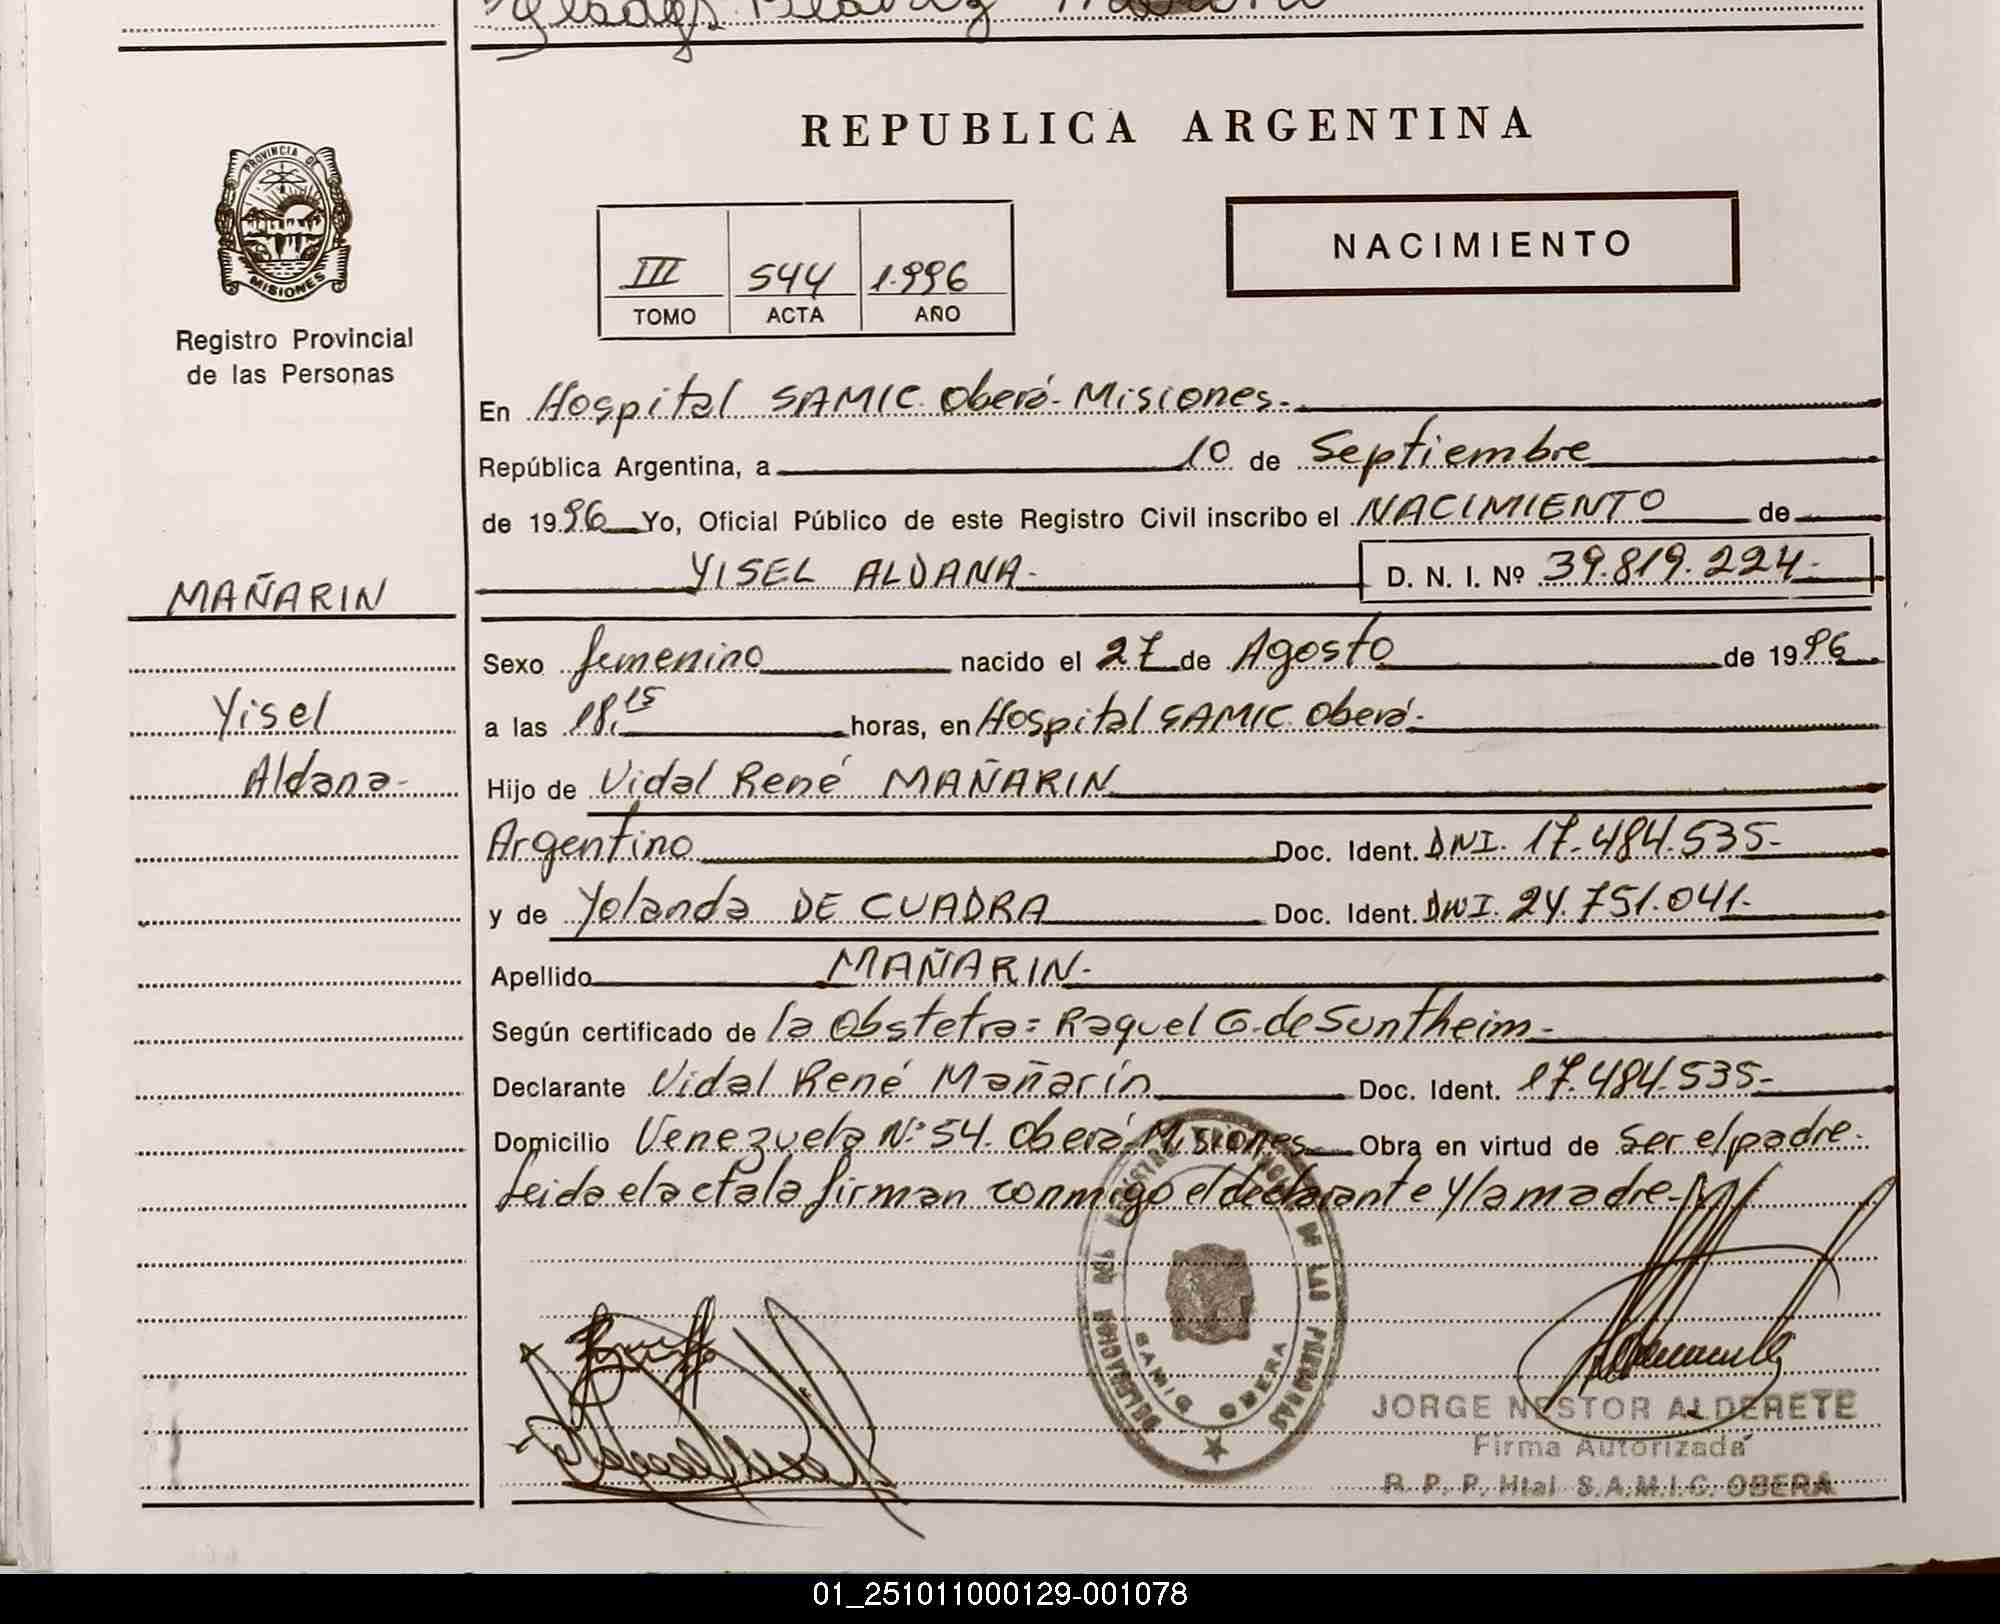 Gladys Beatriz
PROVINCIA DE
MISIONES
Registro Provincial
de las Personas
MAÑARIN
Yisel
Aldana-
REPUBLICA ARGENTINA
III 544 1.996
TOMO ACTA AÑO
NACIMIENTO
En Hospital SAMIC. Oberá- Misiones.-
República Argentina, a 10 de Septiembre
de 1996 Yo, Oficial Público de este Registro Civil inscribo el NACIMIENTO de
YISEL ALDANA- D. N. I. Nº 39.819.224-
Sexo femenino nacido el 27 de Agosto de 1996
a las 18.15 horas, en Hospital SAMIC. Oberá-
Hijo de Vidal René MAÑARIN
Argentino Doc. Ident. DNI. 17.484.535-
y de Yolanda DE CUADRA Doc. Ident. DNI. 24.751.041-
Apellido MAÑARIN-
Según certificado de la Obstetra: Raquel G. de Suntheim-
Declarante Vidal René Mañarín Doc. Ident. 17.484.535-
Domicilio Venezuela Nº 54. Oberá-Misiones Obra en virtud de ser el padre-
Leida el acta la firman conmigo el declarante y la madre-
DELEGACION DEL REGISTRO PROVINCIAL DE LAS PERSONAS
SAMIC OBERA
JORGE NESTOR ALDERETE
Firma Autorizada
R. P. P. Htal S.A.M.I.C. OBERA
01_251011000129-001078